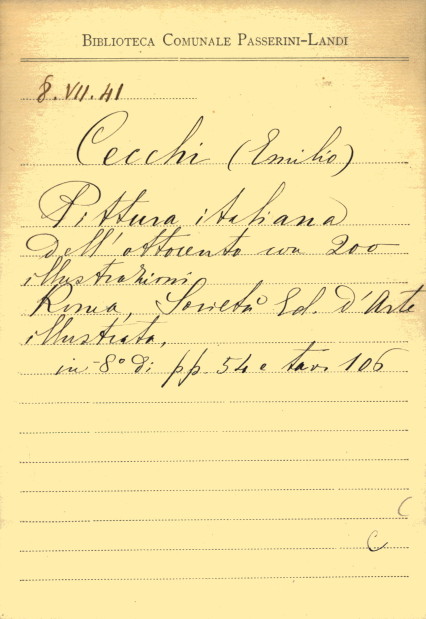 BIBLIOTECA COMUNALE PASSERINI-LANDI
8.VII.41
Cecchi (Emilio)
Pittura italiana
dell'ottocento con 200
illustrazioni
Roma, Società Ed. D'Arte
illustrata,
in-8° di pp. 54 e tavv 106